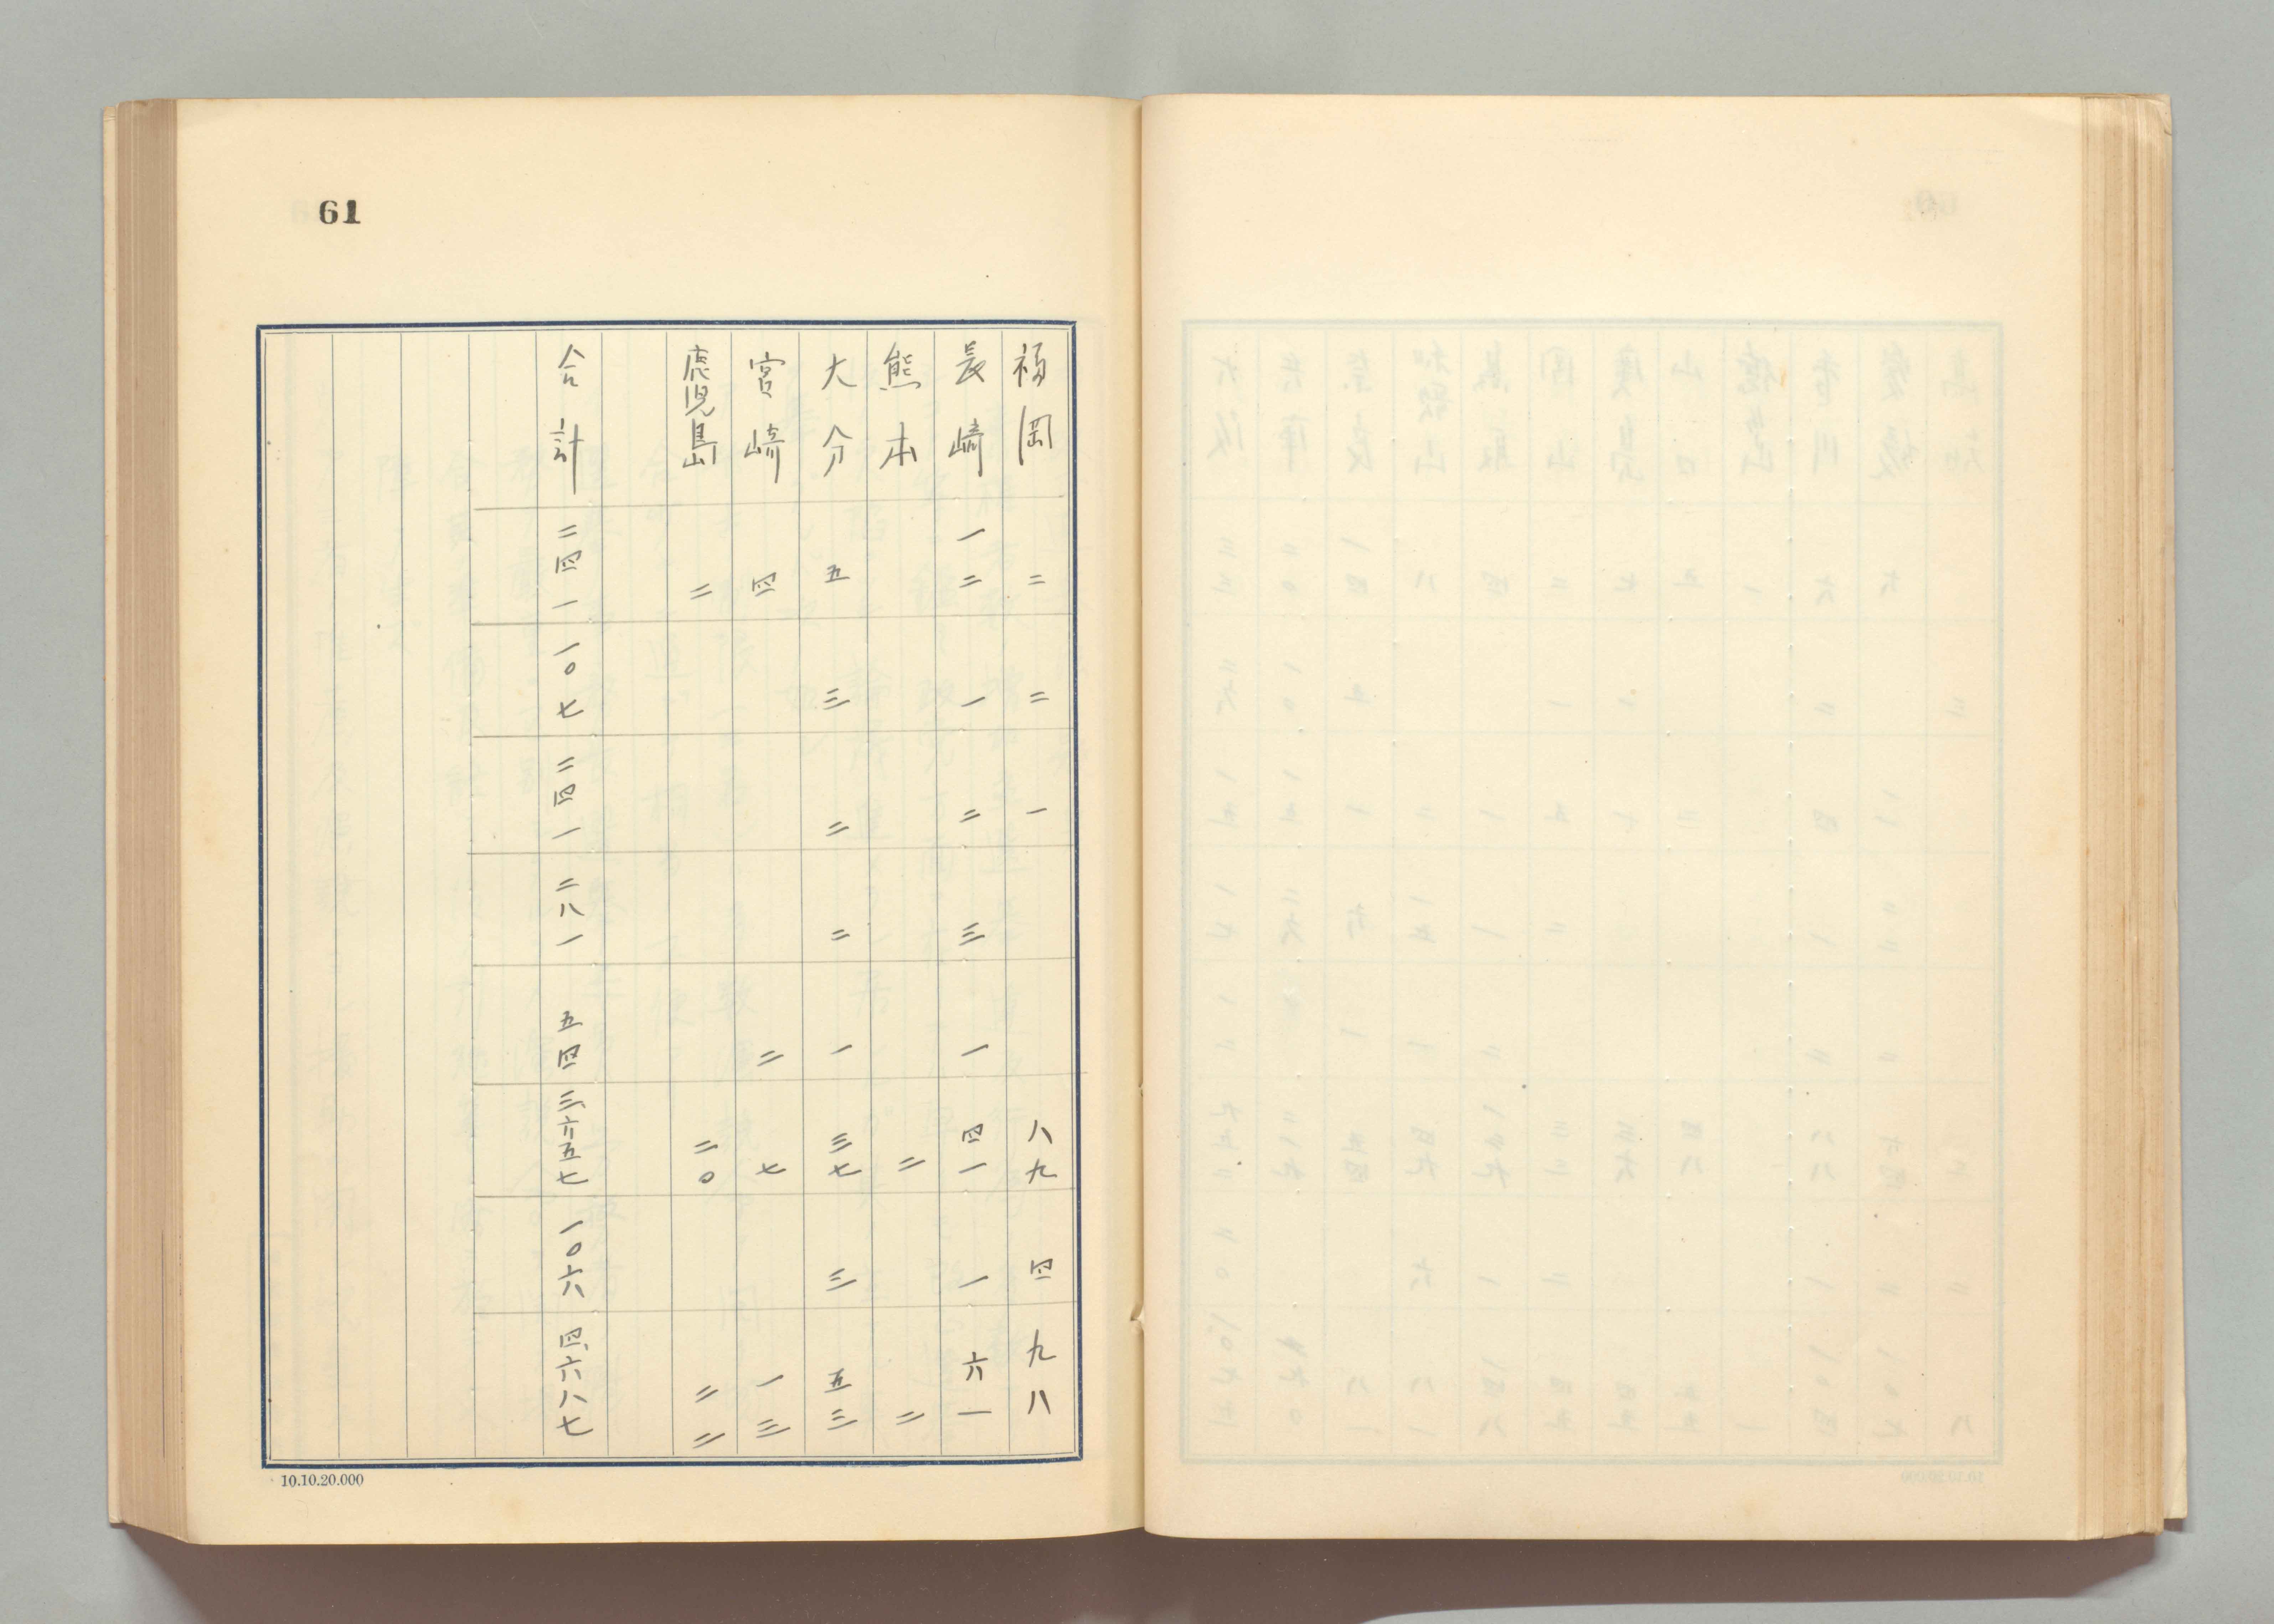 61
福岡 二 二 一 八九 四 九八
長崎 一二 一 二 三 一 四一 一 六一
熊本 二 二
大分 五 三 二 二 一 三七 三 五三
宮崎 四 二 七 一三
鹿児島 二 二〇 二二
合計 二四一 一〇七 二四一 二八一 五四 三、六五七 一〇六 四、六八七
10.10.20.000